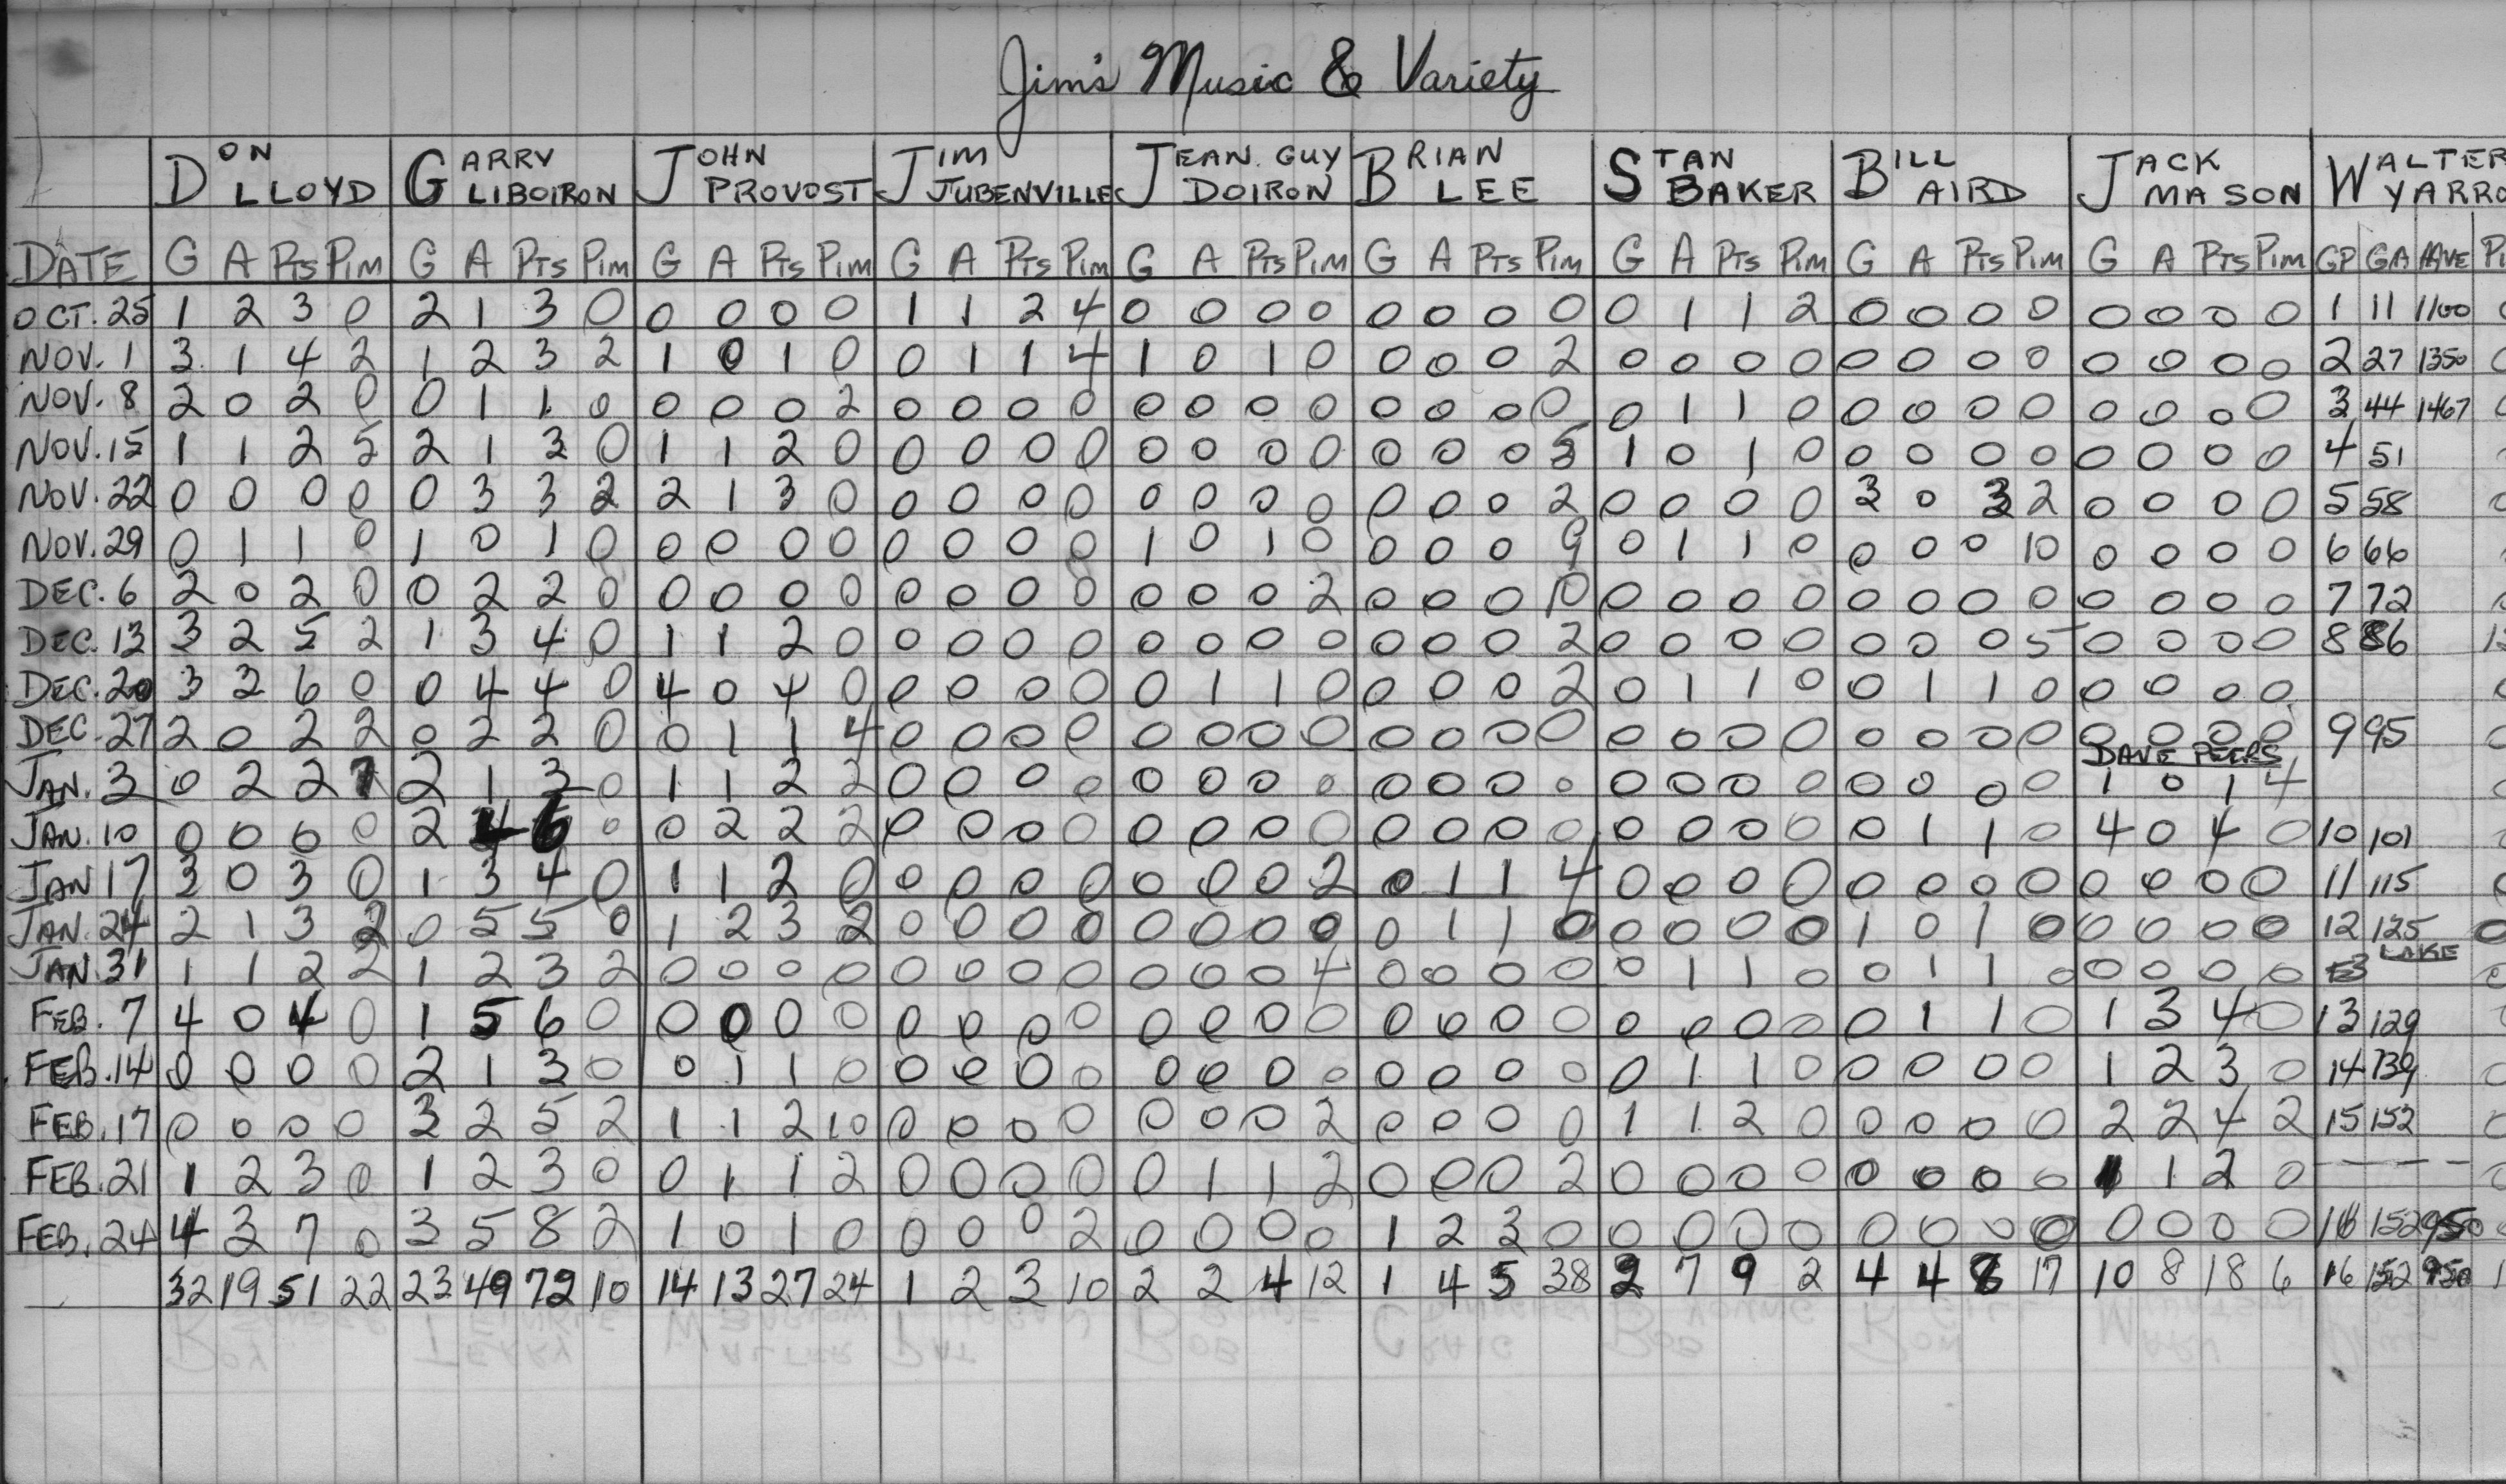 Jim's Music & Variety
DON LLOYD GARRY LIBOIRON JOHN PROVOST JIM JUBENVILLE JEAN. GUY DOIRON BRIAN LEE STAN BAKER BILL AIRD JACK MASON WALTER YARRO
DATE G A PTS PIM G A PTS PIM G A PTS PIM G A PTS PIM G A PTS PIM G A PTS PIM G A PTS PIM G A PTS PIM G A PTS PIM GP GA AVE PI
OCT. 25 1 2 3 0 2 1 3 0 0 0 0 0 1 1 2 4 0 0 0 0 0 0 0 0 0 1 1 2 0 0 0 0 0 0 0 0 1 11 1100
NOV. 1 3 1 4 2 1 2 3 2 1 0 1 0 0 1 1 4 1 0 1 0 0 0 0 2 0 0 0 0 0 0 0 0 0 0 0 0 2 27 1350
NOV. 8 2 0 2 0 0 1 1 0 0 0 0 2 0 0 0 0 0 0 0 0 0 0 0 0 0 1 1 0 0 0 0 0 0 0 0 0 3 44 1467
NOV. 15 1 1 2 5 2 1 3 0 1 1 2 0 0 0 0 0 0 0 0 0 0 0 0 5 1 0 1 0 0 0 0 0 0 0 0 0 4 51
NOV. 22 0 0 0 0 0 3 3 2 2 1 3 0 0 0 0 0 0 0 0 0 0 0 0 2 0 0 0 0 3 0 3 2 0 0 0 0 5 58
NOV. 29 0 1 1 0 1 0 1 0 0 0 0 0 0 0 0 0 1 0 1 0 0 0 0 9 0 1 1 0 0 0 0 10 0 0 0 0 6 66
DEC. 6 2 0 2 0 0 2 2 0 0 0 0 0 0 0 0 0 0 0 0 2 0 0 0 10 0 0 0 0 0 0 0 0 0 0 0 0 7 72
DEC. 13 3 2 5 2 1 3 4 0 1 1 2 0 0 0 0 0 0 0 0 0 0 0 0 2 0 0 0 0 0 0 0 5 0 0 0 0 8 86
DEC. 20 3 3 6 0 0 4 4 0 4 0 4 0 0 0 0 0 0 1 1 0 0 0 0 2 0 1 1 0 0 1 1 0 0 0 0 0
DEC. 27 2 0 2 2 0 2 2 0 0 1 1 4 0 0 0 0 0 0 0 0 0 0 0 0 0 0 0 0 0 0 0 0 0 0 0 0 9 95
DAVE PEERS
JAN. 3 0 2 2 7 2 1 3 0 1 1 2 2 0 0 0 0 0 0 0 0 0 0 0 0 0 0 0 0 0 0 0 0 1 0 1 4
JAN. 10 0 0 0 0 2 4 6 0 0 2 2 2 0 0 0 0 0 0 0 0 0 0 0 0 0 0 0 0 0 1 1 0 4 0 4 0 10 101
JAN 17 3 0 3 0 1 3 4 0 1 1 2 0 0 0 0 0 0 0 0 2 0 1 1 4 0 0 0 0 0 0 0 0 0 0 0 0 11 115
JAN. 24 2 1 3 2 0 5 5 0 1 2 3 2 0 0 0 0 0 0 0 0 0 1 1 0 0 0 0 0 1 0 1 0 0 0 0 0 12 125 0
LAKE
JAN. 31 1 1 2 2 1 2 3 2 0 0 0 0 0 0 0 0 0 0 0 4 0 0 0 0 0 1 1 0 0 1 1 0 0 0 0 0
FEB. 7 4 0 4 0 1 5 6 0 0 0 0 0 0 0 0 0 0 0 0 0 0 0 0 0 0 0 0 0 0 1 1 0 1 3 4 0 13 129
FEB. 14 0 0 0 0 2 1 3 0 0 1 1 0 0 0 0 0 0 0 0 0 0 0 0 0 0 1 1 0 0 0 0 0 1 2 3 0 14 139
FEB. 17 0 0 0 0 3 2 5 2 1 1 2 10 0 0 0 0 0 0 0 2 0 0 0 0 1 1 2 0 0 0 0 0 2 2 4 2 15 152
FEB. 21 1 2 3 0 1 2 3 0 0 1 1 2 0 0 0 0 0 1 1 2 0 0 0 2 0 0 0 0 0 0 0 0 1 1 2 0 — — — —
FEB. 24 4 3 7 0 3 5 8 2 1 0 1 0 0 0 0 2 0 0 0 0 1 2 3 0 0 0 0 0 0 0 0 0 0 0 0 0 16 152 950
32 19 51 22 23 49 72 10 14 13 27 24 1 2 3 10 2 2 4 12 1 4 5 38 2 7 9 2 4 4 8 17 10 8 18 6 16 152 950 1